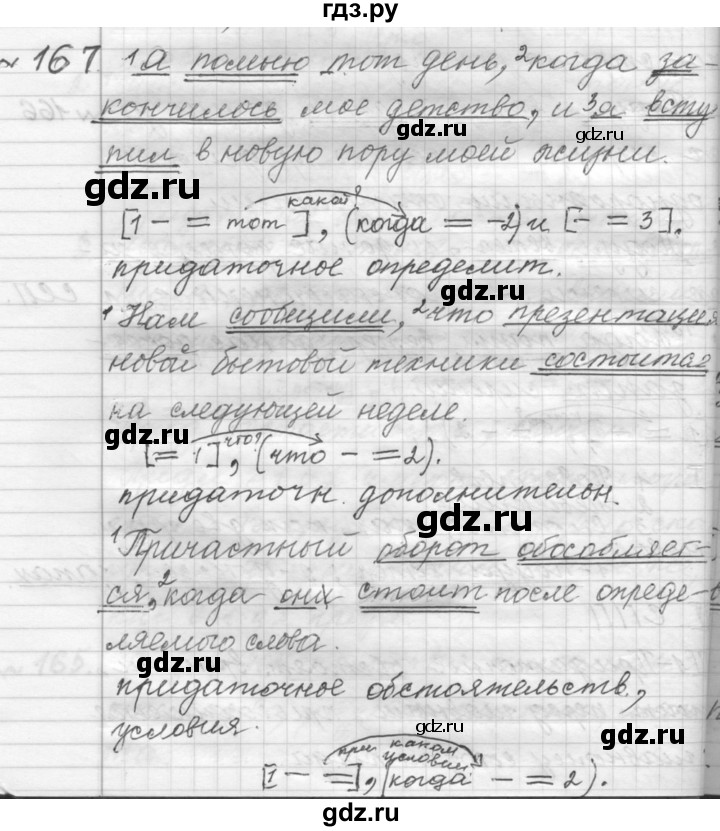 гдз.ру
№ 167. 1Я помню тот день, 2когда за-
кончилось мое детство, и 3я всту
пил в новую пору моей жизни.
gdz.ru gdz.ru
какой?
[1 – = тот], (когда = –2) и [– = 3].
придаточное определит.
gdz.ru
1Нам сообщили, 2что презентация
новой бытовой техники состоится
на следующей неделе.
gdz.ru что?
[= 1], (что – = 2).
придаточн. дополнительн.
gdz.ru
1Причастный оборот обособляет-
ся, 2когда они стоит после опреде-
gdz.ru
ляемого слова.
gdz.ru
придаточное обстоятельств.,
условия.
gdz.ru
при каком
условии
[1 – =], (когда – = 2).
gdz.ru gdz.ru